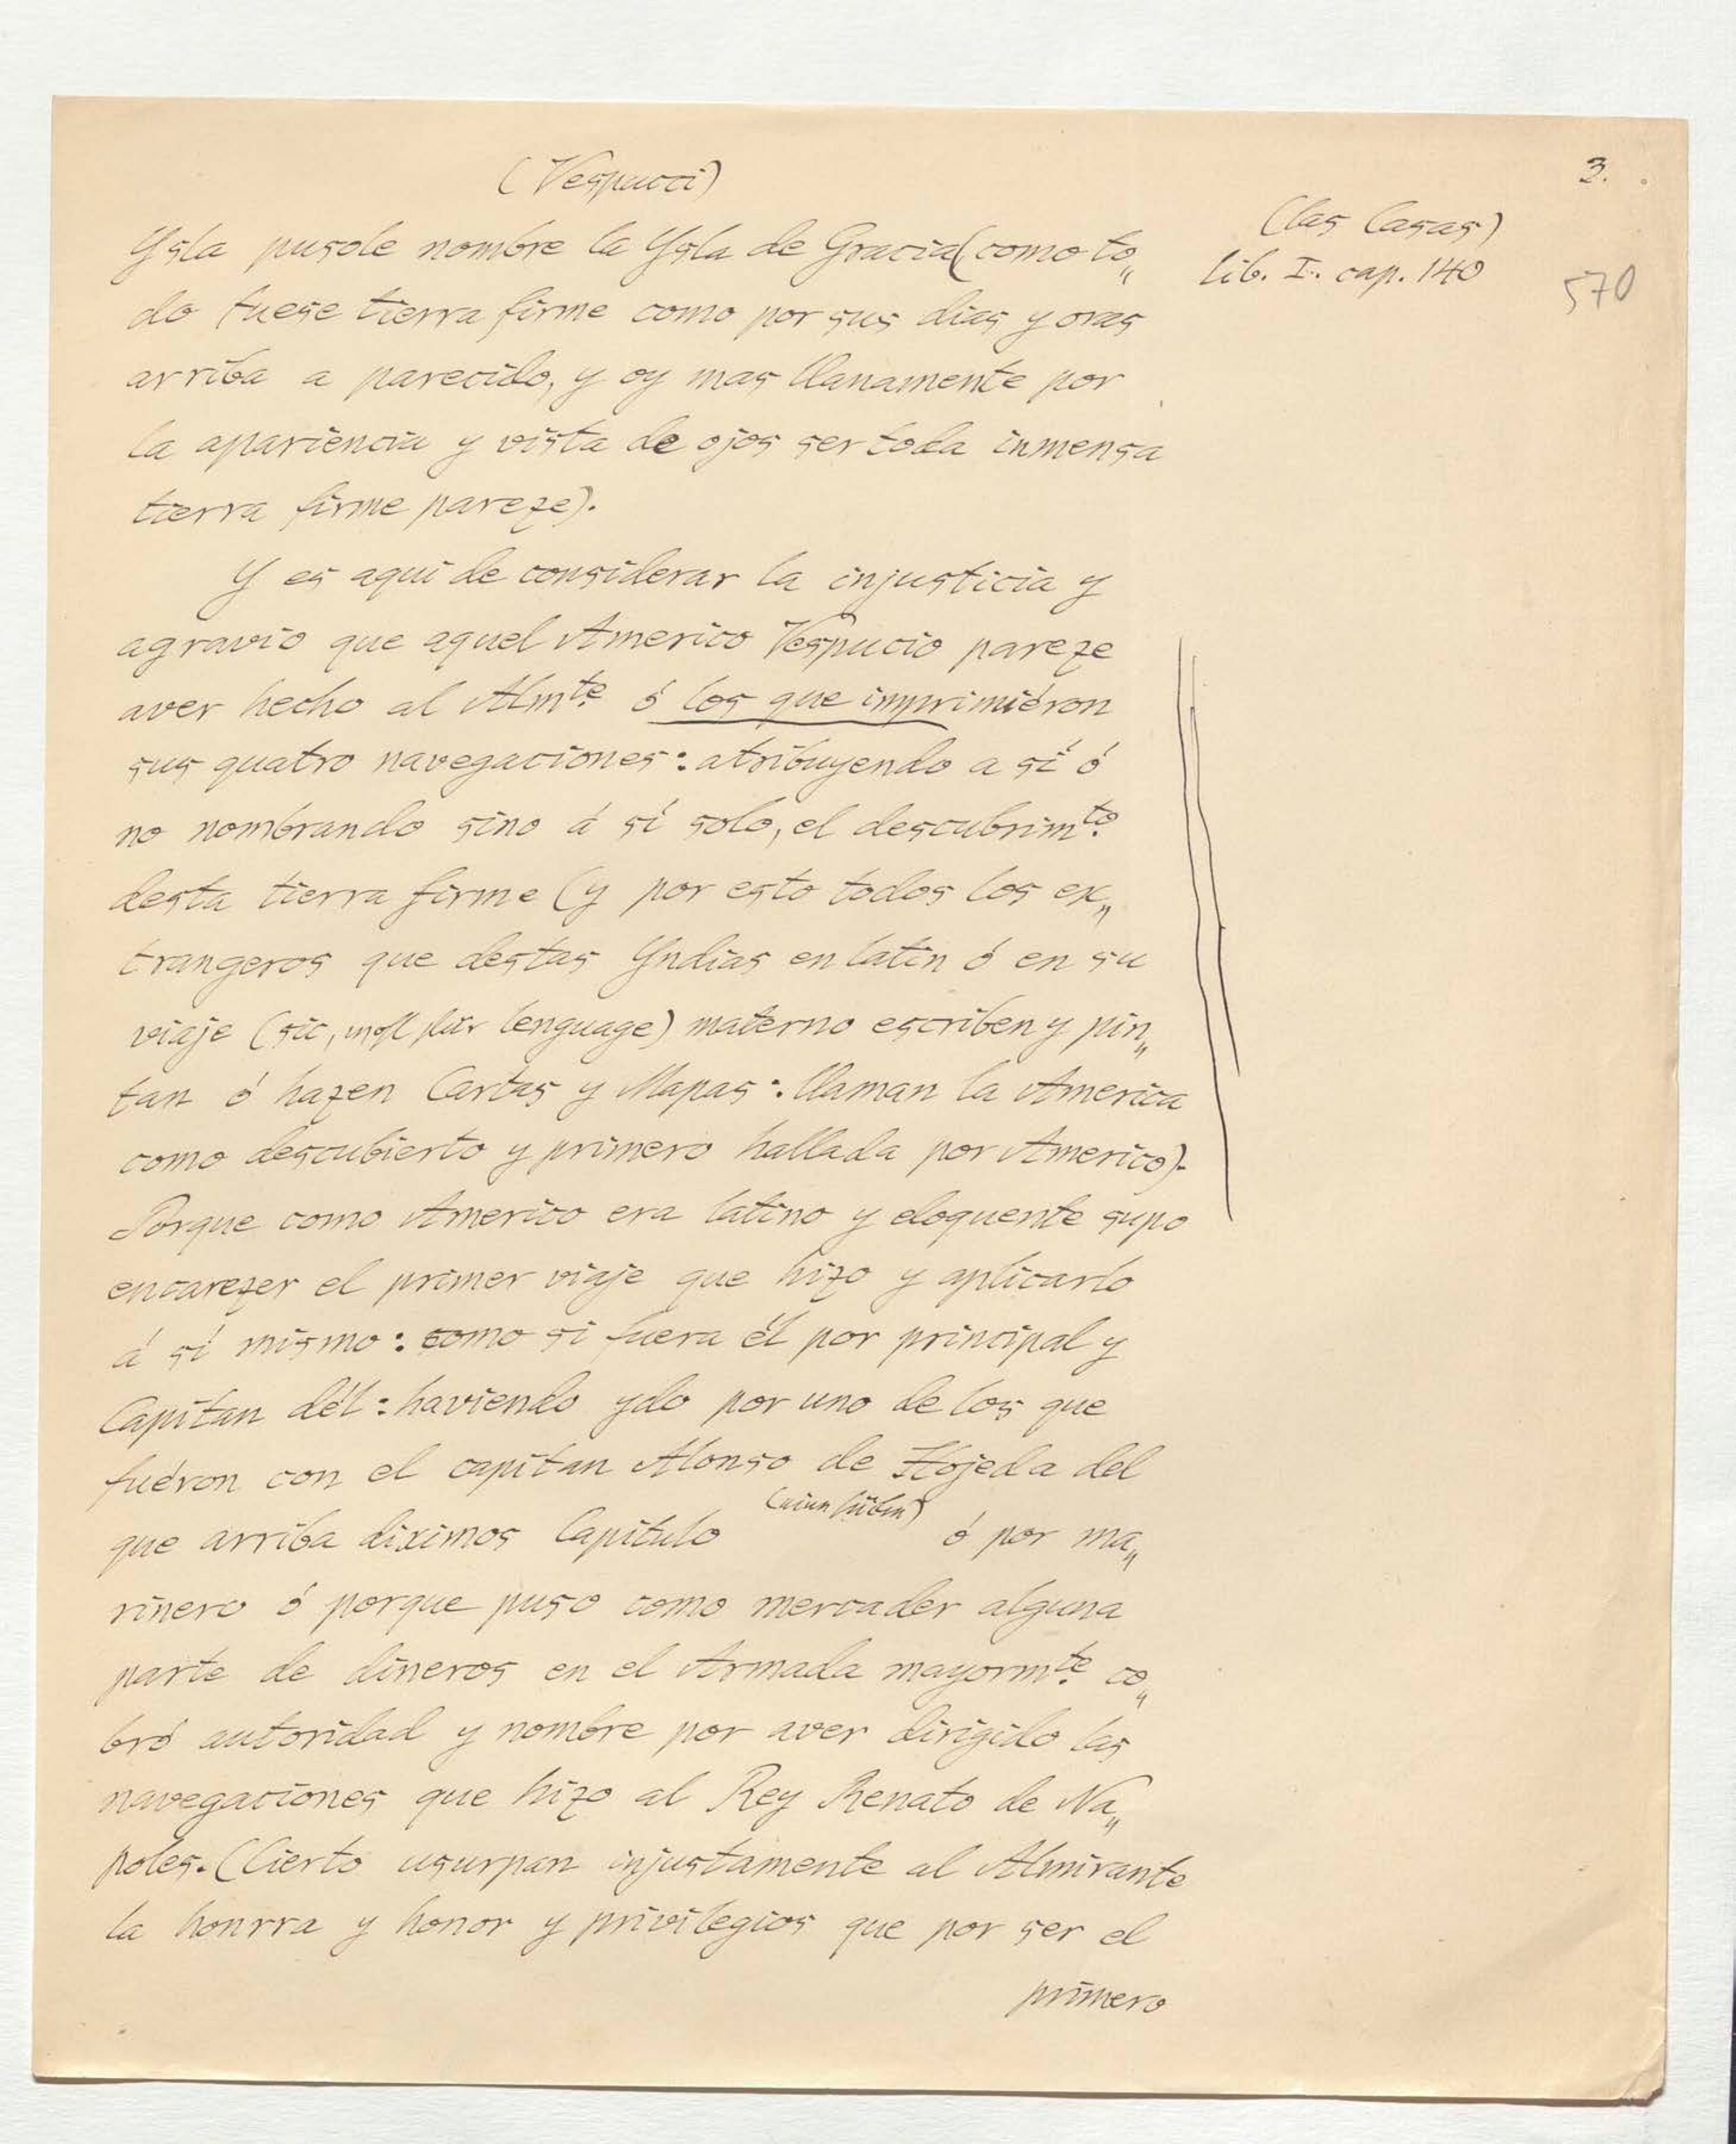 (Vespucci)
3.
(las Casas)
Lib. I. cap. 140
570
Ysla pusole nombre la Ysla de Gracia (como to„
do fuese tierra firme como por sus dias y oras
arriba a parecido, y oy mas llanamente por
la apariencia y vista de ojos ser toda inmensa
tierra firme pareze).
Y es aqui de considerar la injusticia y
agravio que aquel Americo Vespucio pareze
aver hecho al Almte. ó los que imprimiéron
sus quatro navegaciones: atribuyendo a sí ó
no nombrando sino á sí solo, el descubrimto.
desta tierra firme (y por esto todos los ex„
trangeros que destas Yndias en latin ó en su
viaje (sic, wohl für lenguage) materno escriben y pin„
tan ó hazen Cartas y Mapas: llaman la America
como descubierto y primero hallada por Americo).
Porque como Americo era latino y eloquente supo
encarezer el primer viaje que hizo y aplicarlo
á sí mismo: como si fuera él por principal y
Capitan dél: haviendo ydo por uno de los que
fuéron con el capitan Alonso de Hojeda del
que arriba diximos Capitulo ó por ma„
rinero ó porque puso como mercader alguna
parte de dineros en el Armada mayormte. co„
bró autoridad y nombre por aver dirigido las
navegaciones que hizo al Rey Renato de Na„
poles. (Cierto usurpan injustamente al Almirante
la honrra y honor y privilegios que por ser el
primero